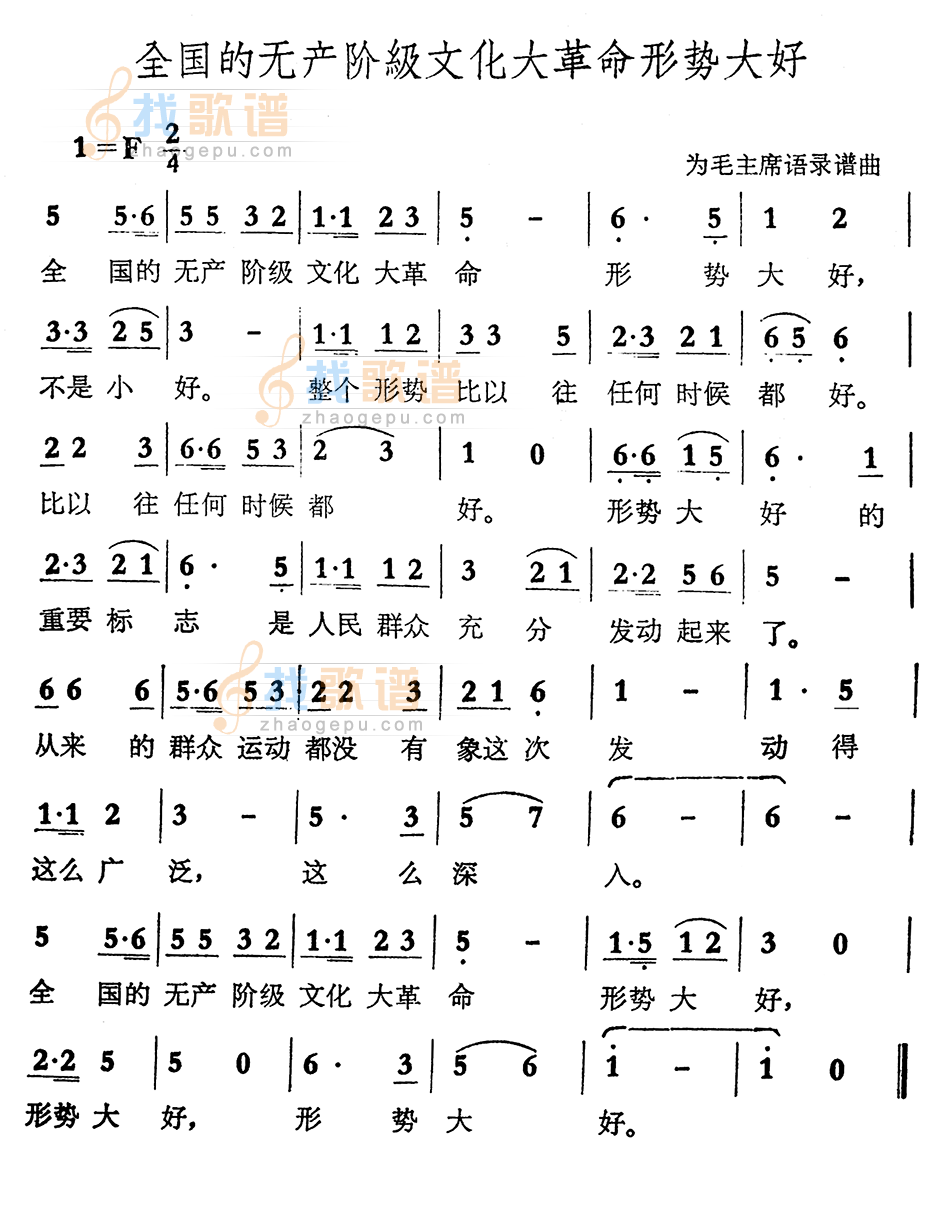 全国的无产阶級文化大革命形势大好
找歌谱
zhaogepu.com
1=F 2/4
为毛主席语录谱曲
5 5·6 | 5 5 3 2 | 1·1 2 3 | 5 - | 6· 5 | 1 2 |
全 国的 无产 阶级 文化 大革 命 形 势 大 好，
3·3 2 5 | 3 - | 1·1 1 2 | 3 3 5 | 2·3 2 1 | 6 5 6 |
不是 小 好。 整个 形势 比以 往 任何 时候 都 好。
找歌谱
zhaogepu.com
2 2 3 | 6·6 5 3 | 2 3 | 1 0 | 6·6 1 5 | 6· 1 |
比以 往 任何 时候 都 好。 形势 大 好 的
2·3 2 1 | 6· 5 | 1·1 1 2 | 3 2 1 | 2·2 5 6 | 5 - |
重要 标 志 是 人民 群众 充 分 发动 起来 了。
找歌谱
zhaogepu.com
6 6 6 | 5·6 5 3 | 2 2 3 | 2 1 6 | 1 - | 1· 5 |
从来 的 群众 运动 都没 有 象这 次 发 动 得
1·1 2 | 3 - | 5· 3 | 5 7 | 6 - | 6 - |
这么 广 泛， 这 么 深 入。
5 5·6 | 5 5 3 2 | 1·1 2 3 | 5 - | 1·5 1 2 | 3 0 |
全 国的 无产 阶级 文化 大革 命 形势 大 好，
2·2 5 | 5 0 | 6· 3 | 5 6 | 1 - | 1 0 ‖
形势 大 好， 形 势 大 好。